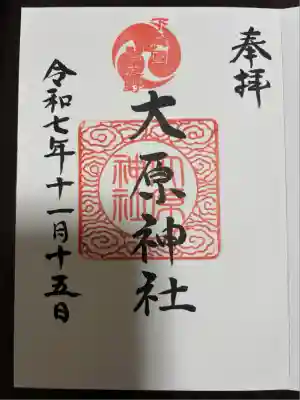 奉拝
下総國
大原神社
大原神社
令和七年十一月十五日